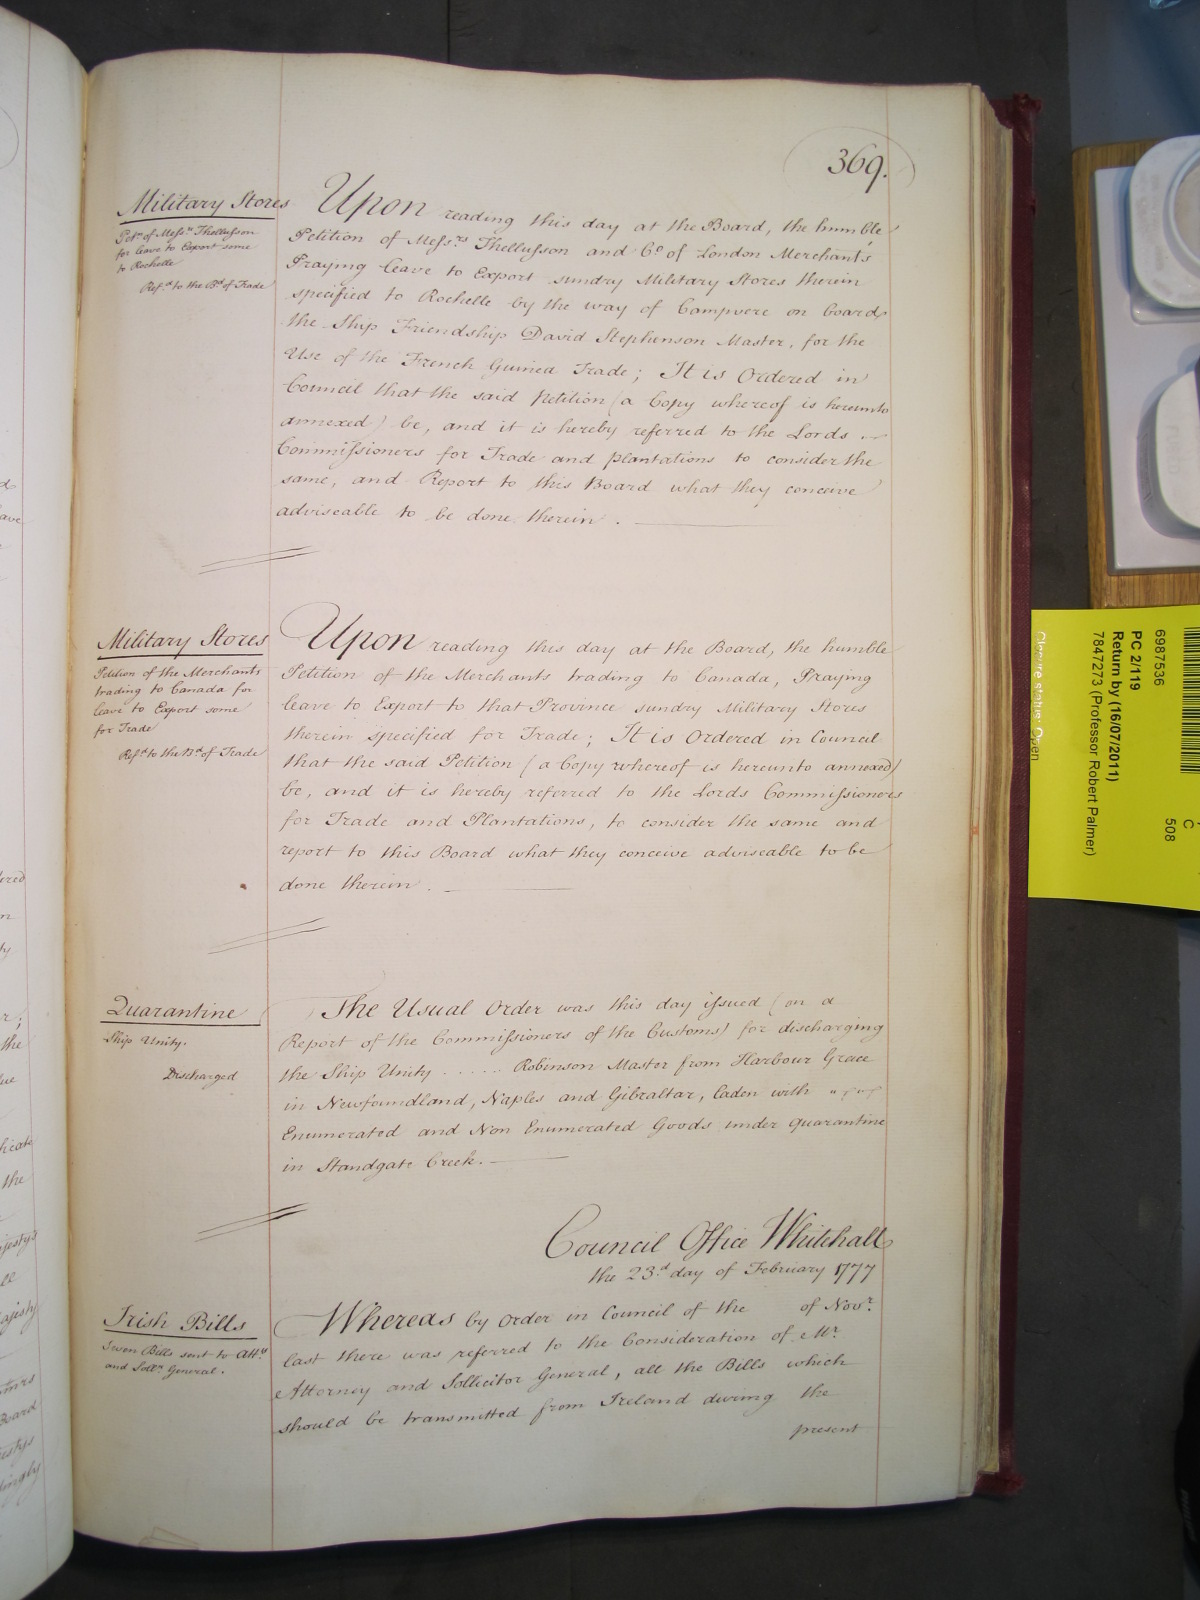 369.
Military Stores
Petn. of Messrs. Thellusson
for leave to Export some
to Rochelle
Refd. to the Bd. of Trade
Upon reading this day at the Board, the humble
Petition of Messrs. Thellusson and Co. of London Merchants
Praying leave to Export sundry Military Stores therein
specified to Rochelle by the way of Campvere on board
the Ship Friendship David Stephenson Master, for the
Use of the French Guinea Trade; It is Ordered in
Council that the said Petition (a Copy whereof is hereunto
annexed) be, and it is hereby referred to the Lords
Commissioners for Trade and Plantations to consider the
same, and Report to this Board what they conceive
adviseable to be done therein.
Military Stores
Petition of the Merchants
trading to Canada for
leave to Export some
for Trade
Refd. to the Bd. of Trade
Upon reading this day at the Board, the humble
Petition of the Merchants trading to Canada, Praying
leave to Export to that Province sundry Military Stores
therein specified for Trade; It is Ordered in Council
that the said Petition (a Copy whereof is hereunto annexed)
be, and it is hereby referred to the Lords Commissioners
for Trade and Plantations, to consider the same and
report to this Board what they conceive adviseable to be
done therein.
Quarantine
Ship Unity.
Discharged
The Usual Order was this day issued (on a
Report of the Commissioners of the Customs) for discharging
the Ship Unity ..... Robinson Master from Harbour Grace
in Newfoundland, Naples and Gibraltar, Laden with
Enumerated and Non Enumerated Goods under quarantine
in Standgate Creek.
Council Office Whitehall
the 23d. day of February 1777
Irish Bills
Seven Bills sent to Atty.
and Sollr. General.
Whereas by Order in Council of the of Novr.
last there was referred to the Consideration of Mr.
Attorney and Sollicitor General, all the Bills which
should be transmitted from Ireland during the
present
6987536
PC 2/119
Return by (16/07/2011)
7847273 (Professor Robert Palmer)
Closure status: Open
C
508